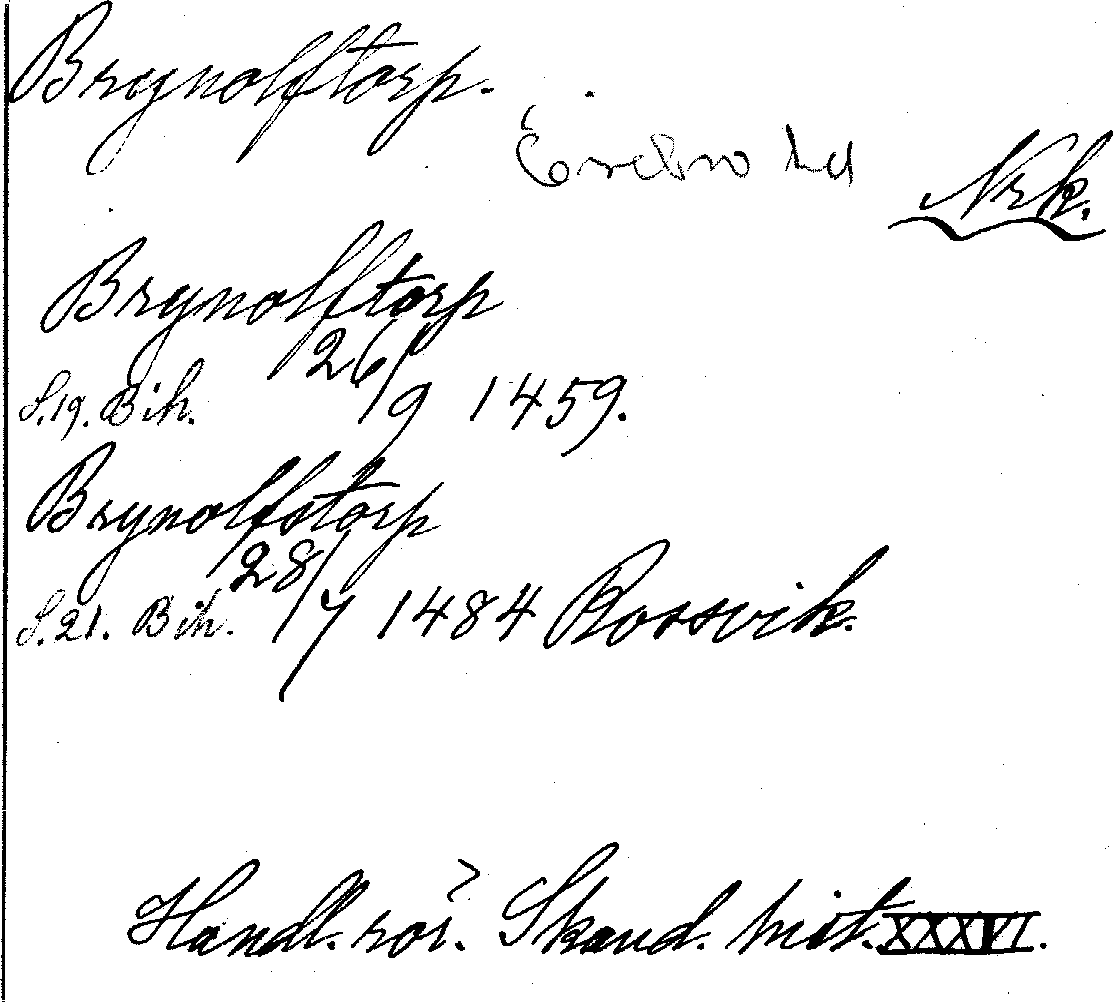 Brynolftorp.
Örebro hd
Nrk.
Brynolftorp
S.19. Bih. 26/9 1459.
Brynolfstorp
S.21. Bih. 28/7 1484 Rossvik.
Handl. rör. Skand. hist. XXXVI.